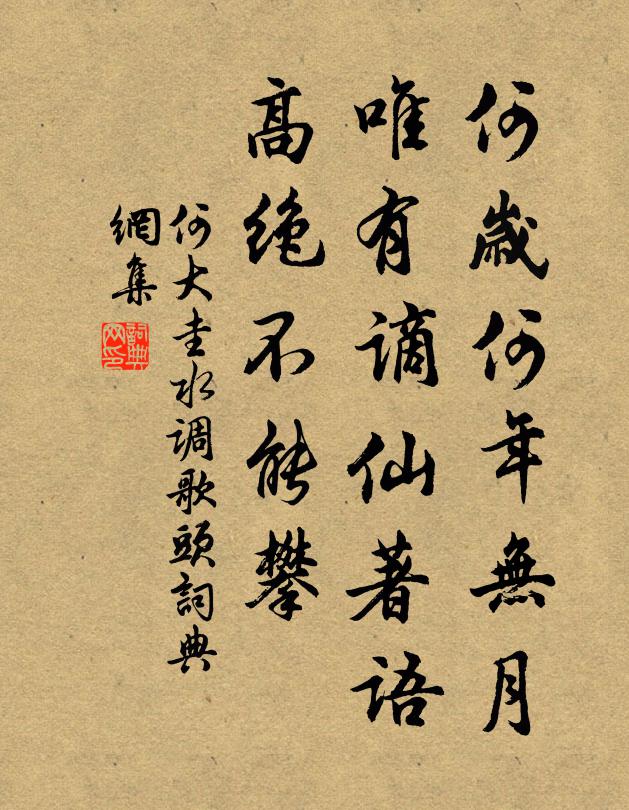 何歲何年無月
唯有謫仙著語
高絶不能攀
何大圭水调歌頭詞典
網集
詞典
网印